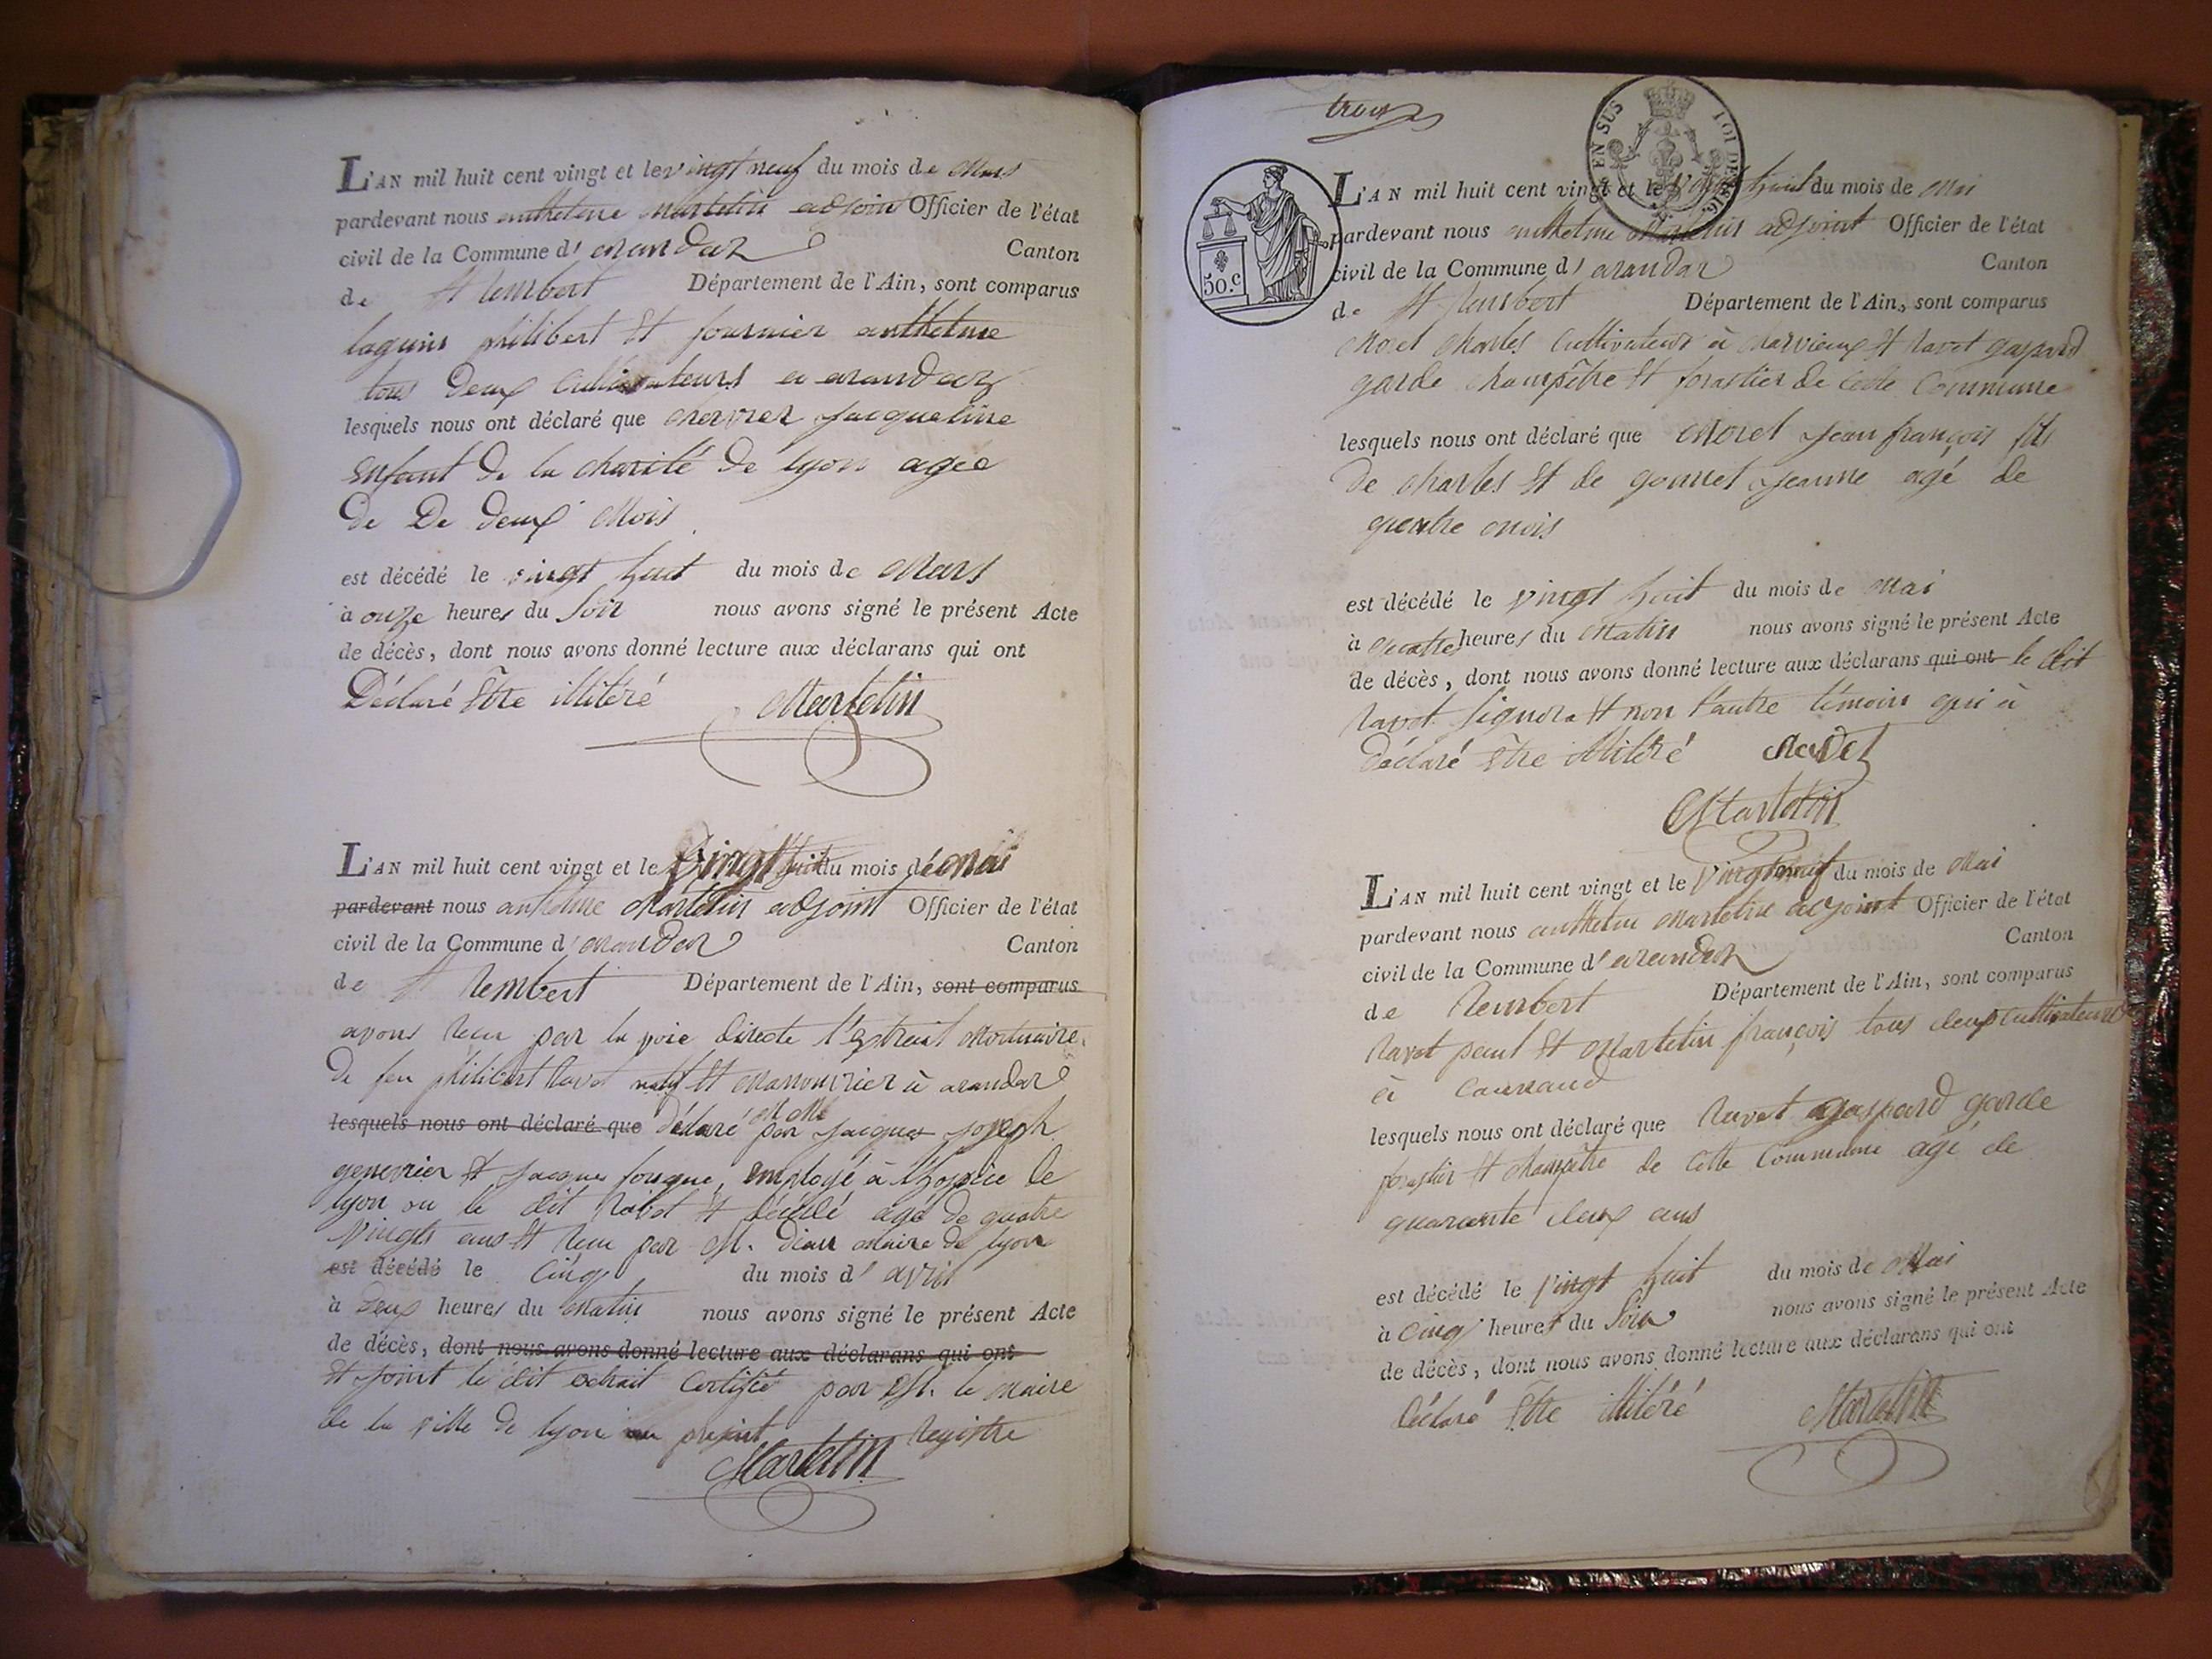 L'AN mil huit cent vingt et le vingt neuf du mois de Mars
pardevant nous anthelme Martelin adjoint Officier de l'état
civil de la Commune d' arandaz Canton
de St Rembert Département de l'Ain, sont comparus
laguin philibert et fournier anthelme
tous deux Cultivateurs a arandaz
lesquels nous ont déclaré que chervrer Jacqueline
enfant de la charité de lyon agée
de De deux Mois
est décédé le vingt huit du mois de Mars
à onze heures du Soir nous avons signé le présent Acte
de décès, dont nous avons donné lecture aux déclarans qui ont
Déclaré Etre illitéré Martelin
L'AN mil huit cent vingt et le vingt huit du mois de Mai
pardevant nous anthelme Martelin adjoint Officier de l'état
civil de la Commune d' arandaz Canton
de St Rembert Département de l'Ain, sont comparus
avons Reçu par la voie directe l'Extrait Mortuaire
de feu philibert Ravet natif et Manouvrier à arandaz
lesquels nous ont déclaré que déclaré par Jacques Joseph
genevrier et Jacques fouque, Employé à l'hospice de
lyon ou le dit Ravet et décédé agé de quatre
Vingts ans et Reçu par M. maire de lyon
est décédé le Cinq du mois d' avril
à Deux heures du Matin nous avons signé le présent Acte
de décès, dont nous avons donné lecture aux déclarans qui ont
et joint le dit extrait Certifié par M. le Maire
de la ville de lyon au présent Registre
Martelin
trois
EN SUS
LOI DE 1816
50.c
L'AN mil huit cent vingt et le Vingt huit du mois de Mai
pardevant nous anthelme Martelin adjoint Officier de l'état
civil de la Commune d' arandaz Canton
de St Rembert Département de l'Ain, sont comparus
Morel Charles Cultivateur à charvieux et Ravet gaspard
garde champêtre et forastier de Cette Commune
lesquels nous ont déclaré que Morel Jean françois fils
de Charles et de gonnet Jeanne agé de
quatre mois
est décédé le vingt huit du mois de Mai
à quatre heures du Matin nous avons signé le présent Acte
de décès, dont nous avons donné lecture aux déclarans qui ont le dit
Ravet Signera et non l'autre témoin qui à
déclaré être illitéré Ravet
Martelin
L'AN mil huit cent vingt et le Vingt neuf du mois de Mai
pardevant nous anthelme Martelin adjoint Officier de l'état
civil de la Commune d' arandaz Canton
de Rembert Département de l'Ain, sont comparus
Ravet paul et Martelin françois tous deux Cultivateurs
à
lesquels nous ont déclaré que Ravet gaspard garde
forastier et champêtre de Cette Commune agé de
quarante deux ans
est décédé le vingt huit du mois de Mai
à Cinq heures du Soir nous avons signé le présent Acte
de décès, dont nous avons donné lecture aux déclarans qui ont
déclaré Etre illitéré Martelin